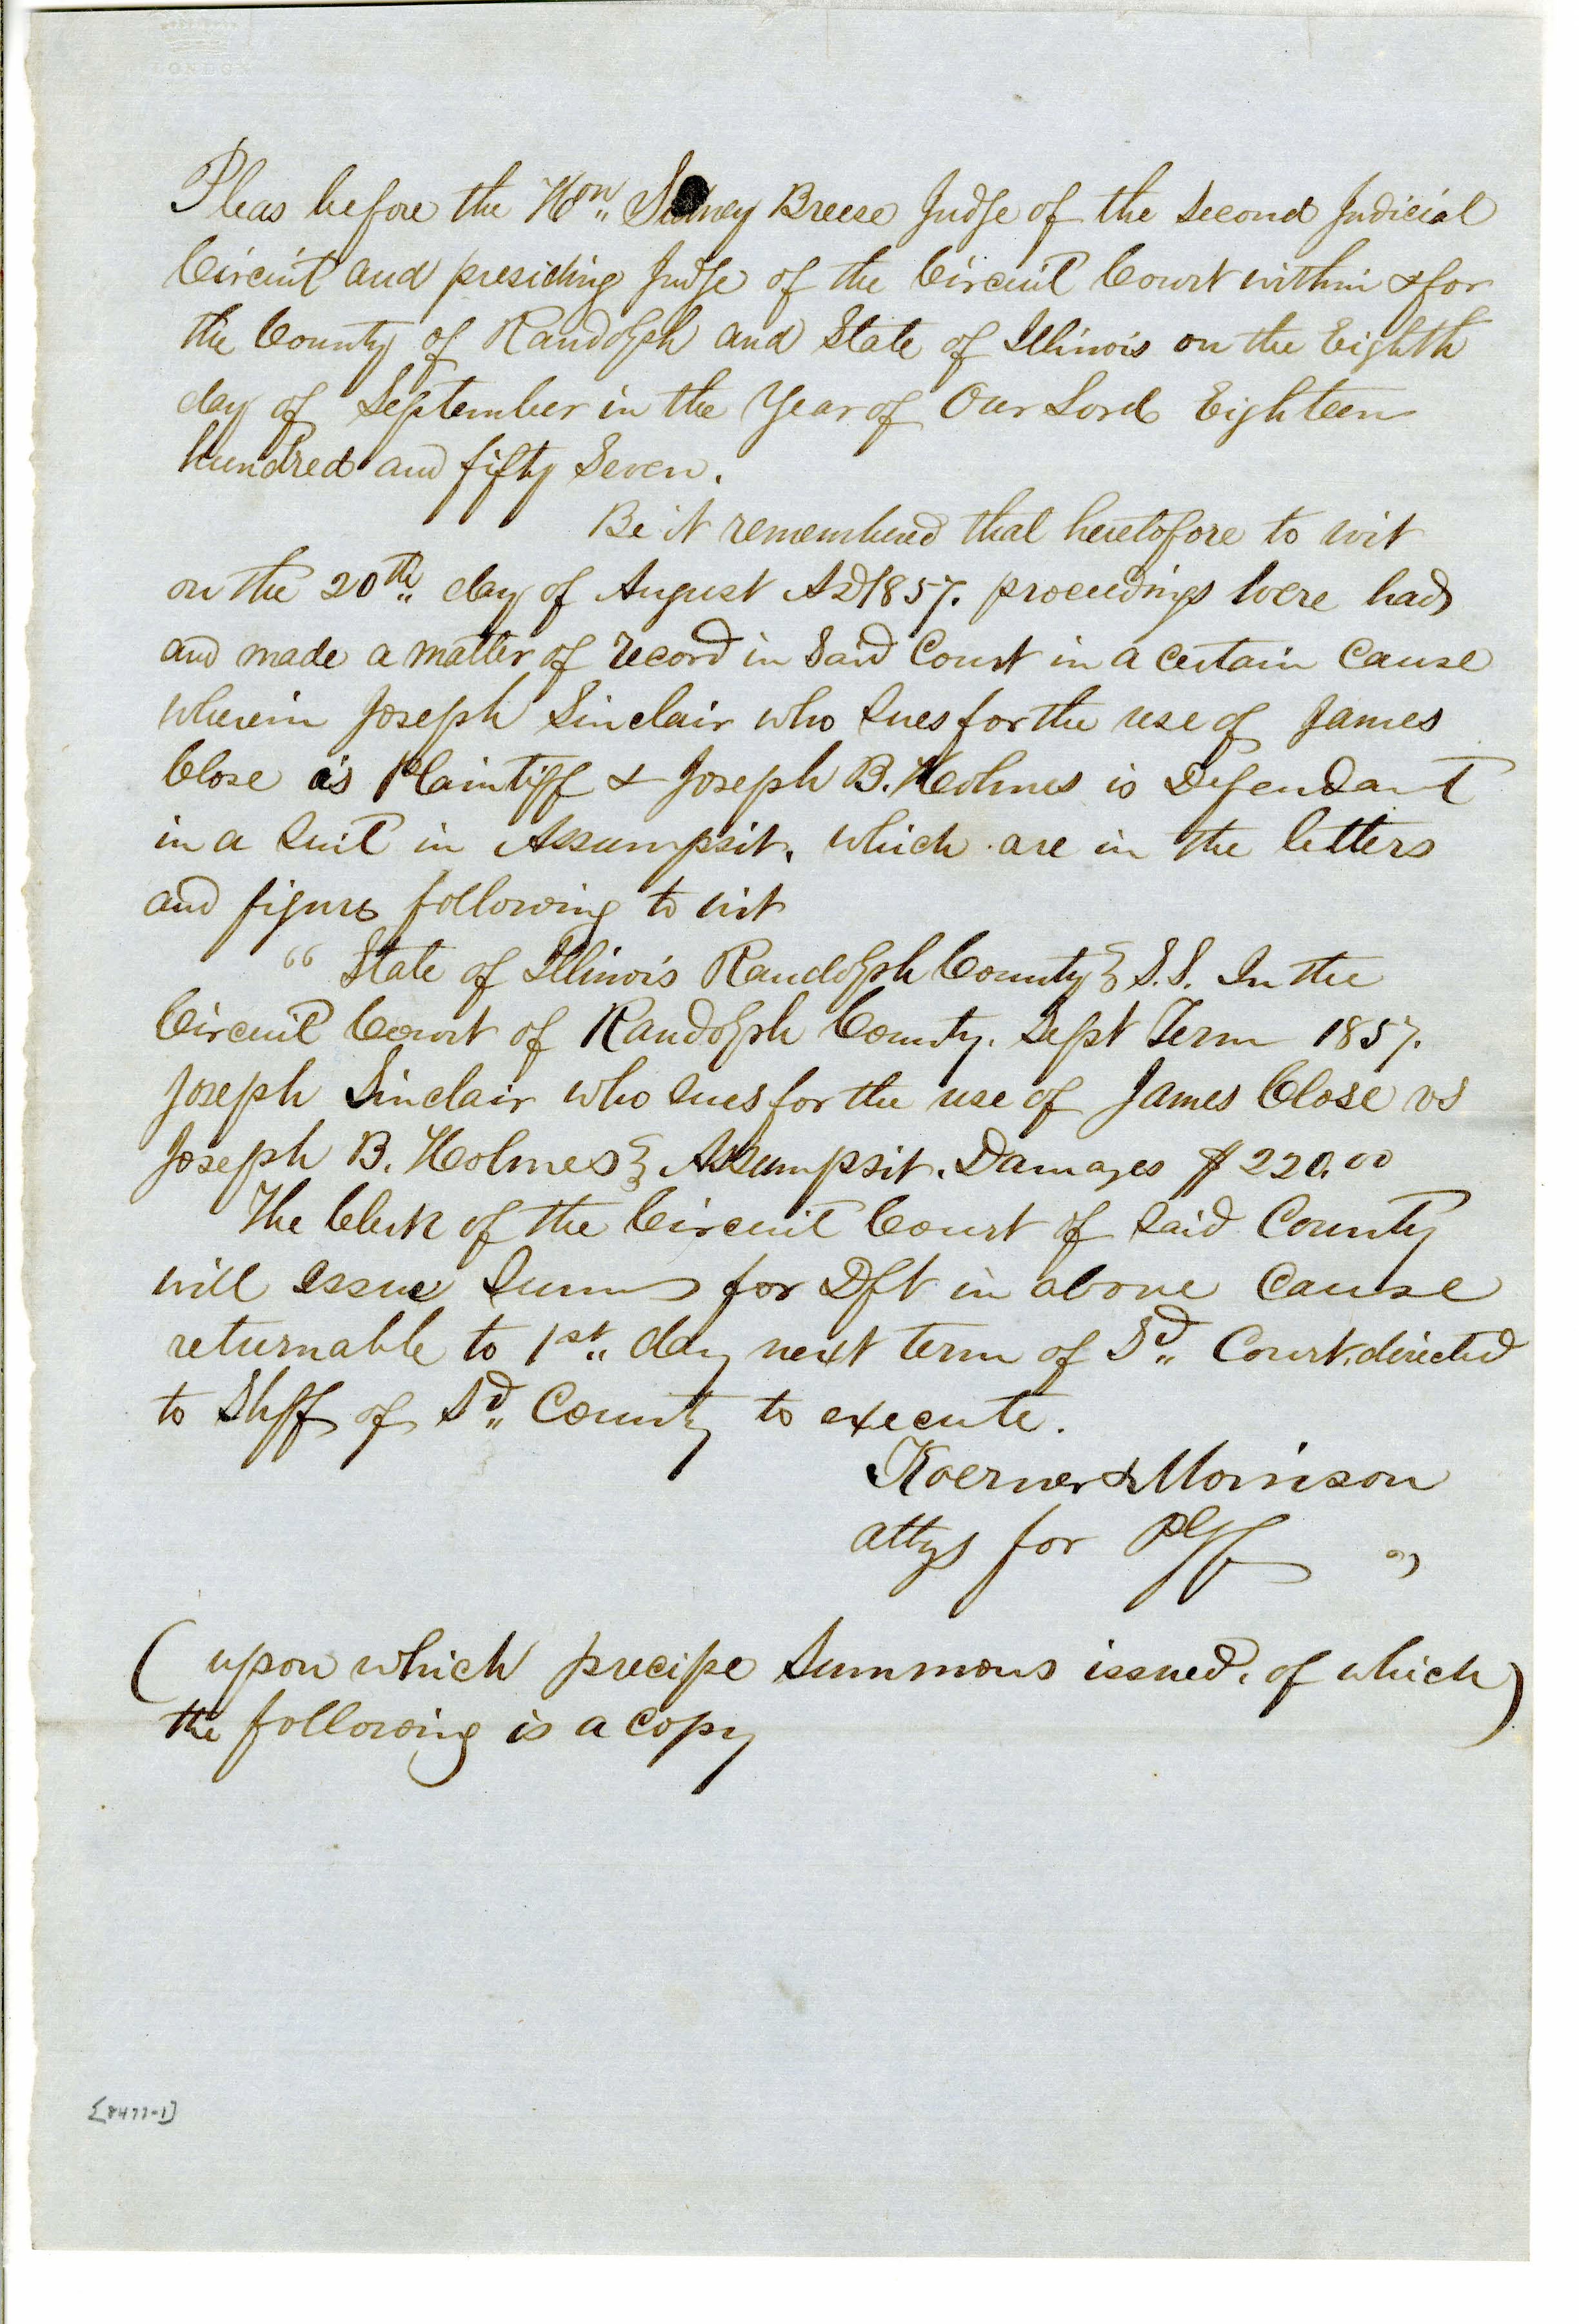 LONDON
Pleas before the Hon,, Sidney Breese Judge of the Second Judicial
Circuit and presiding Judge of the Circuit Court within & for
the County of Randolph and State of Illinois on the Eighth
day of September in the Year of Our Lord Eighteen
hundred and fifty Seven.
Be it remembered that heretofore to wit
on the 20th,, day of August AD 1857. proceedings were had
and made a matter of record in Said Court in a certain Cause
wherein Joseph Sinclair who Sues for the use of James
Close is Plaintiff & Joseph B. Holmes is Defendant
in a Suit in Assumpsit. which are in the letters
and figures following to wit
" State of Illinois Randolph County } S.S. In the
Circuit Court of Randolph County. Sept Term 1857.
Joseph Sinclair who Sues for the use of James Close vs
Joseph B. Holmes } Assumpsit. Damages $220.00
The Clerk of the Circuit Court of Said County
will issue Sums for Dft in above Cause
returnable to 1st,, day next term of Sd,, Court. directed
to Shff of Sd,, County to execute.
Koerner & Morrison
attys for Plff "
( upon which precipe Summons issued. of which )
the following is a copy
[8477-1]